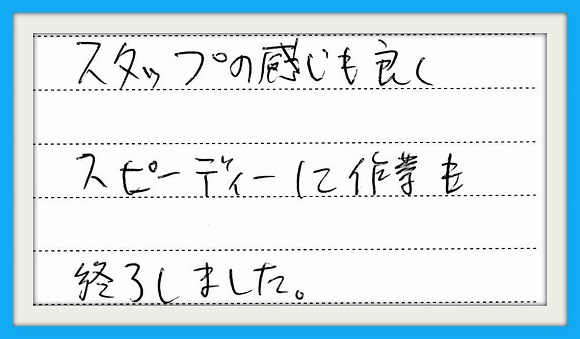 スタップの感じも良く
スピーディーに作業も
終了しました。